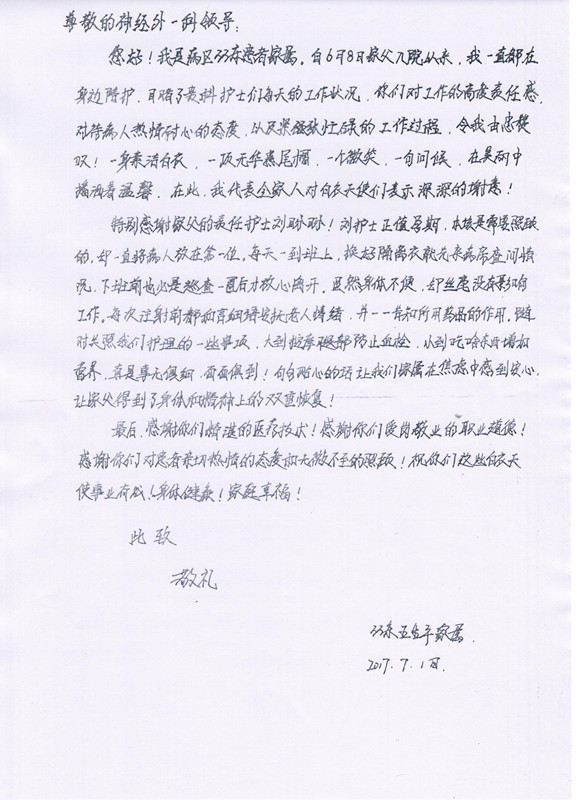 尊敬的神经外一科领导:
您好!我是病区33床患者家属。自6月8日家父入院以来,我一直都在
身边陪护,目睹了贵科护士们每天的工作状况,你们对工作的高度责任感,
对待病人热情耐心的态度,以及紧张忙碌的工作过程,令我由衷赞
叹!一身素洁白衣,一顶无华燕尾帽,一个微笑,一句问候,在
播洒着温馨,在此,我代表全家人对白衣天使们表示深深的谢意!
特别感谢家父的责任护士刘琳琳!刘护士正值孕期,本该是需要照顾
的,却一直将病人放在第一位。每天一到班上,换好隔离衣就先来病房查问情
况,下班前也必是巡查一圈后才放心离开。虽然身体不便,却丝毫没有影响
工作。每次注射前都和言细语安抚老人情绪,并一一告知所用药品的作用。随
时关照我们护理的一些事项,大到按摩腿部防止血栓,小到吃啥东西增加
营养,真是事无俱细,面面俱到!句句耐心的话让我们家属在焦虑中感到安心,
让家父得到了身体和精神上的双重恢复!
最后,感谢你们精湛的医疗技术!感谢你们爱岗敬业的职业道德!
感谢你们对患者亲切热情的态度和无微不至的照顾!祝你们这些白衣天
使事业有成!身体健康!家庭幸福!
此致
敬礼
33床 家属
2017.7.1日.